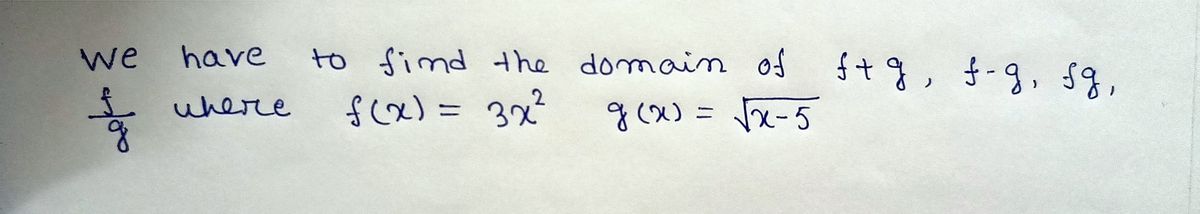 We have to find the domain of f+g, f-g, fg,
f/g where f(x) = 3x² g(x) = √x-5